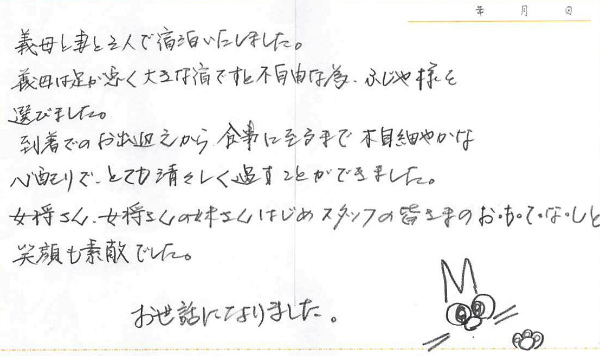 年 月 日
義母と妻と三人で宿泊いたしました。
義母は足が悪く大きな宿ですと不自由な為、ふじや様を
選びました。
到着でのお出迎えから食事に至るまで木目細やかな
心配りで、とても清々しく過すことができました。
女将さん、女将さんの妹さんはじめスタッフの皆さまのお・も・て・な・しと
笑顔も素敵でした。
お世話になりました。